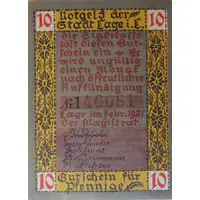 10 Notgeld der 10
Stadt Lage i. L.
die Stadtkasse
löst diesen Gut-
schein ein
er
wird ungültig
einen Monat
nach öffentlicher
Aufkündigung
146061
Lage im Febr. 1921
Der Magistrat.
10 Gutschein für 10
Pfennige